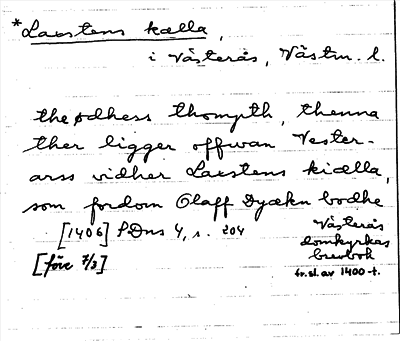 *Laestens kælla,
i Västerås, Västm. l.
the ødhess thompth, thenna
ther ligger offwan Vester-
arss vidher Laestens kiælla,
som fordom Olaff Dyækn bodhe
[1406] SDns 4, s. 204 Västerås
[före 7/3] domkyrkas
brevbok
fr. sl. av 1400-t.